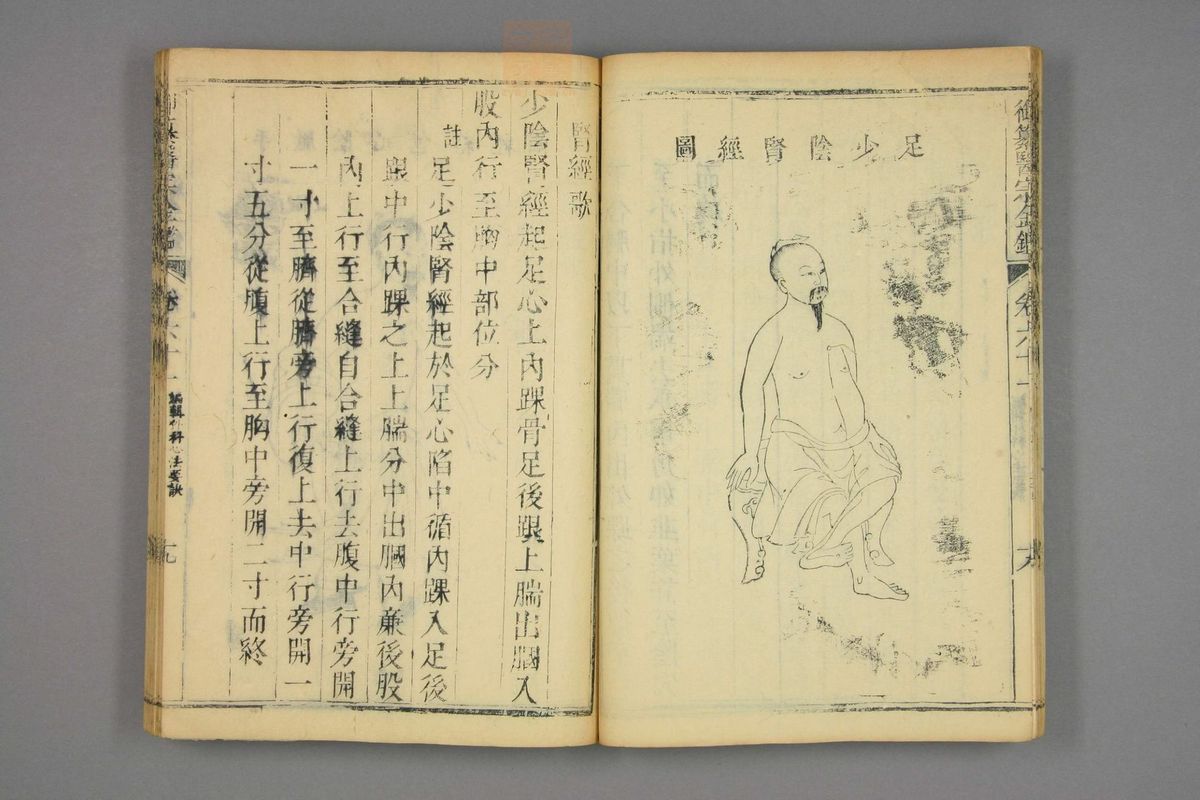 足少陰腎經圖
御纂醫宗金鑑
卷六十一
腎經歌
少陰腎經起足心上內踝骨足後跟上腨出膕入
股內行至胸中部位分
註
足少陰腎經起於足心陷中循內踝入足後
跟中行內踝之上上腨分中出膕內亷後股
內上行至合縫自合縫上行去腹中行旁開
一寸至臍從臍旁上行復上去中行旁開一
寸五分從腹上行至胸中旁開二寸而終
卷六十一
編輯外科心法要訣